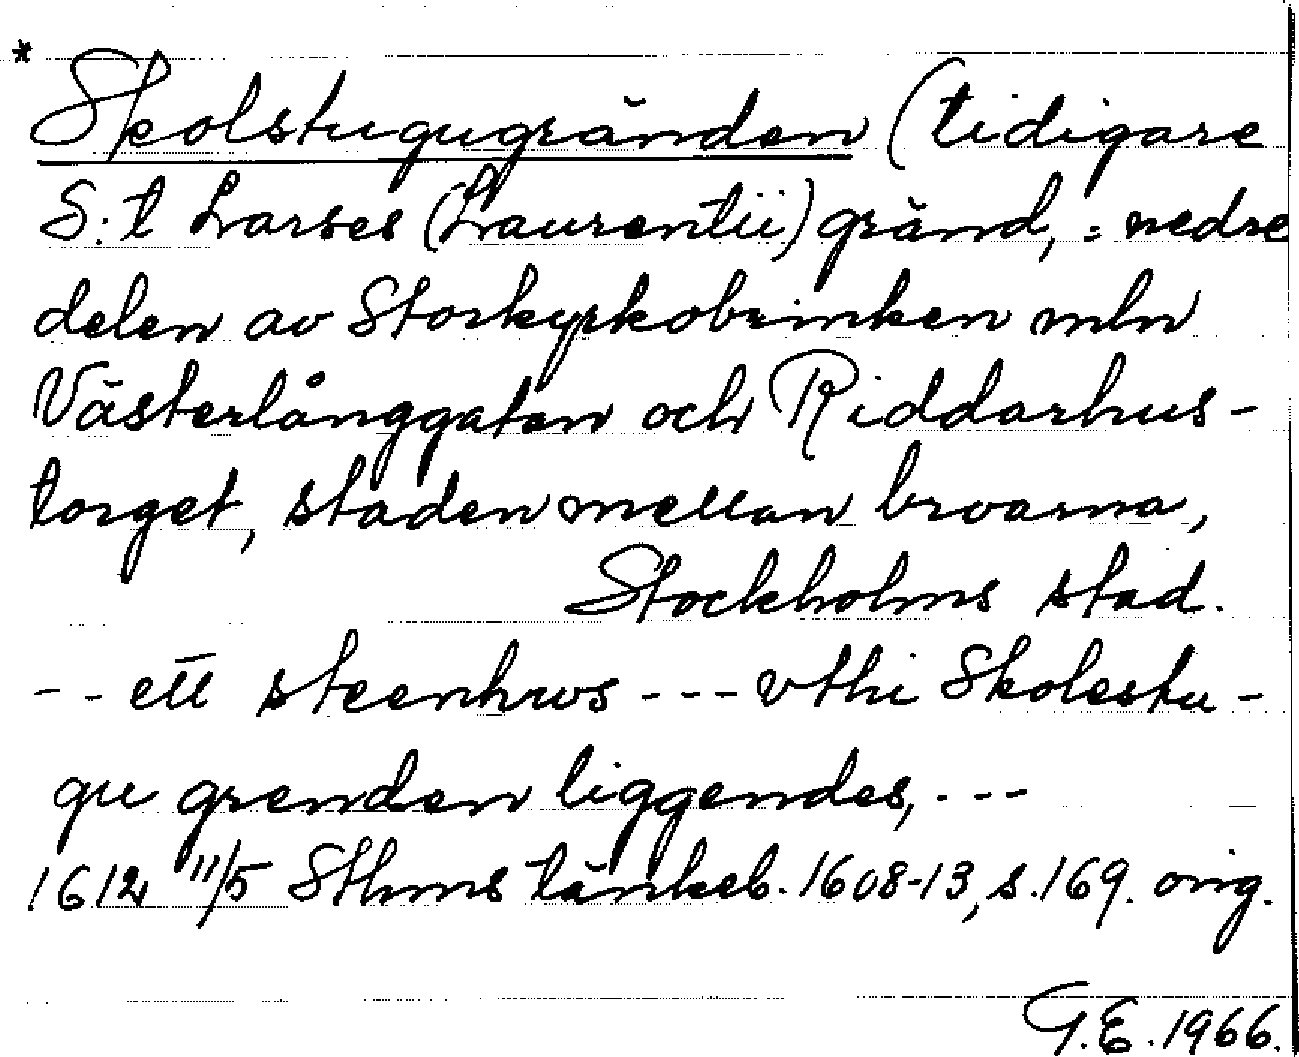 * Skolstugugränden (tidigare
S:t Larses (Laurentii) gränd, = nedre
delen av Storkyrkobrinken mln
Västerlånggatan och Riddarhus-
torget, staden mellan broarna,
Stockholms stad.
-- ett steenhws --- vthi Skolestu-
gu grenden liggendes, ---
1612 11/5 Sthms tänkeb. 1608-13, s. 169. orig.
G.E. 1966.